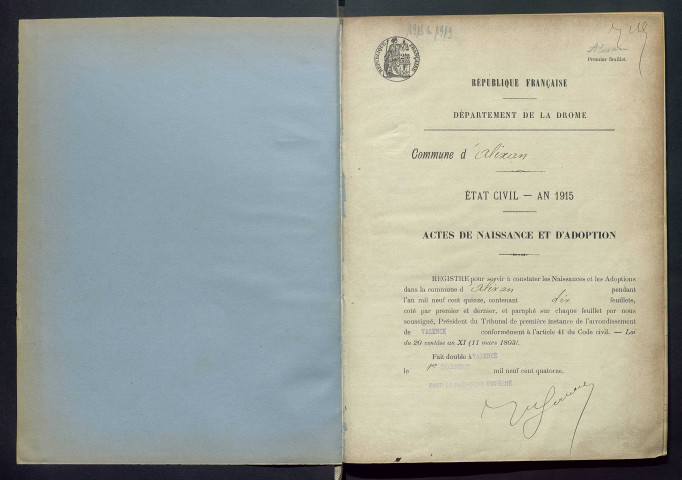 1915 à 1919
Alixan
Premier feuillet.
RÉPUBLIQUE FRANÇAISE
RÉPUBLIQUE FRANÇAISE
DÉPARTEMENT DE LA DROME
Commune d'Alixan
ÉTAT CIVIL — AN 1915
ACTES DE NAISSANCE ET D'ADOPTION
REGISTRE pour servir à constater les Naissances et les Adoptions
dans la commune d'Alixan pendant
l'an mil neuf cent quinze, contenant dix feuillets,
coté par premier et dernier, et paraphé sur chaque feuillet par nous
soussigné, Président du Tribunal de première instance de l'arrondissement
de VALENCE conformément à l'article 41 du Code civil. — Loi
du 20 ventôse an XI (11 mars 1803).
Fait double à VALENCE
le 1er mil neuf cent quatorze.